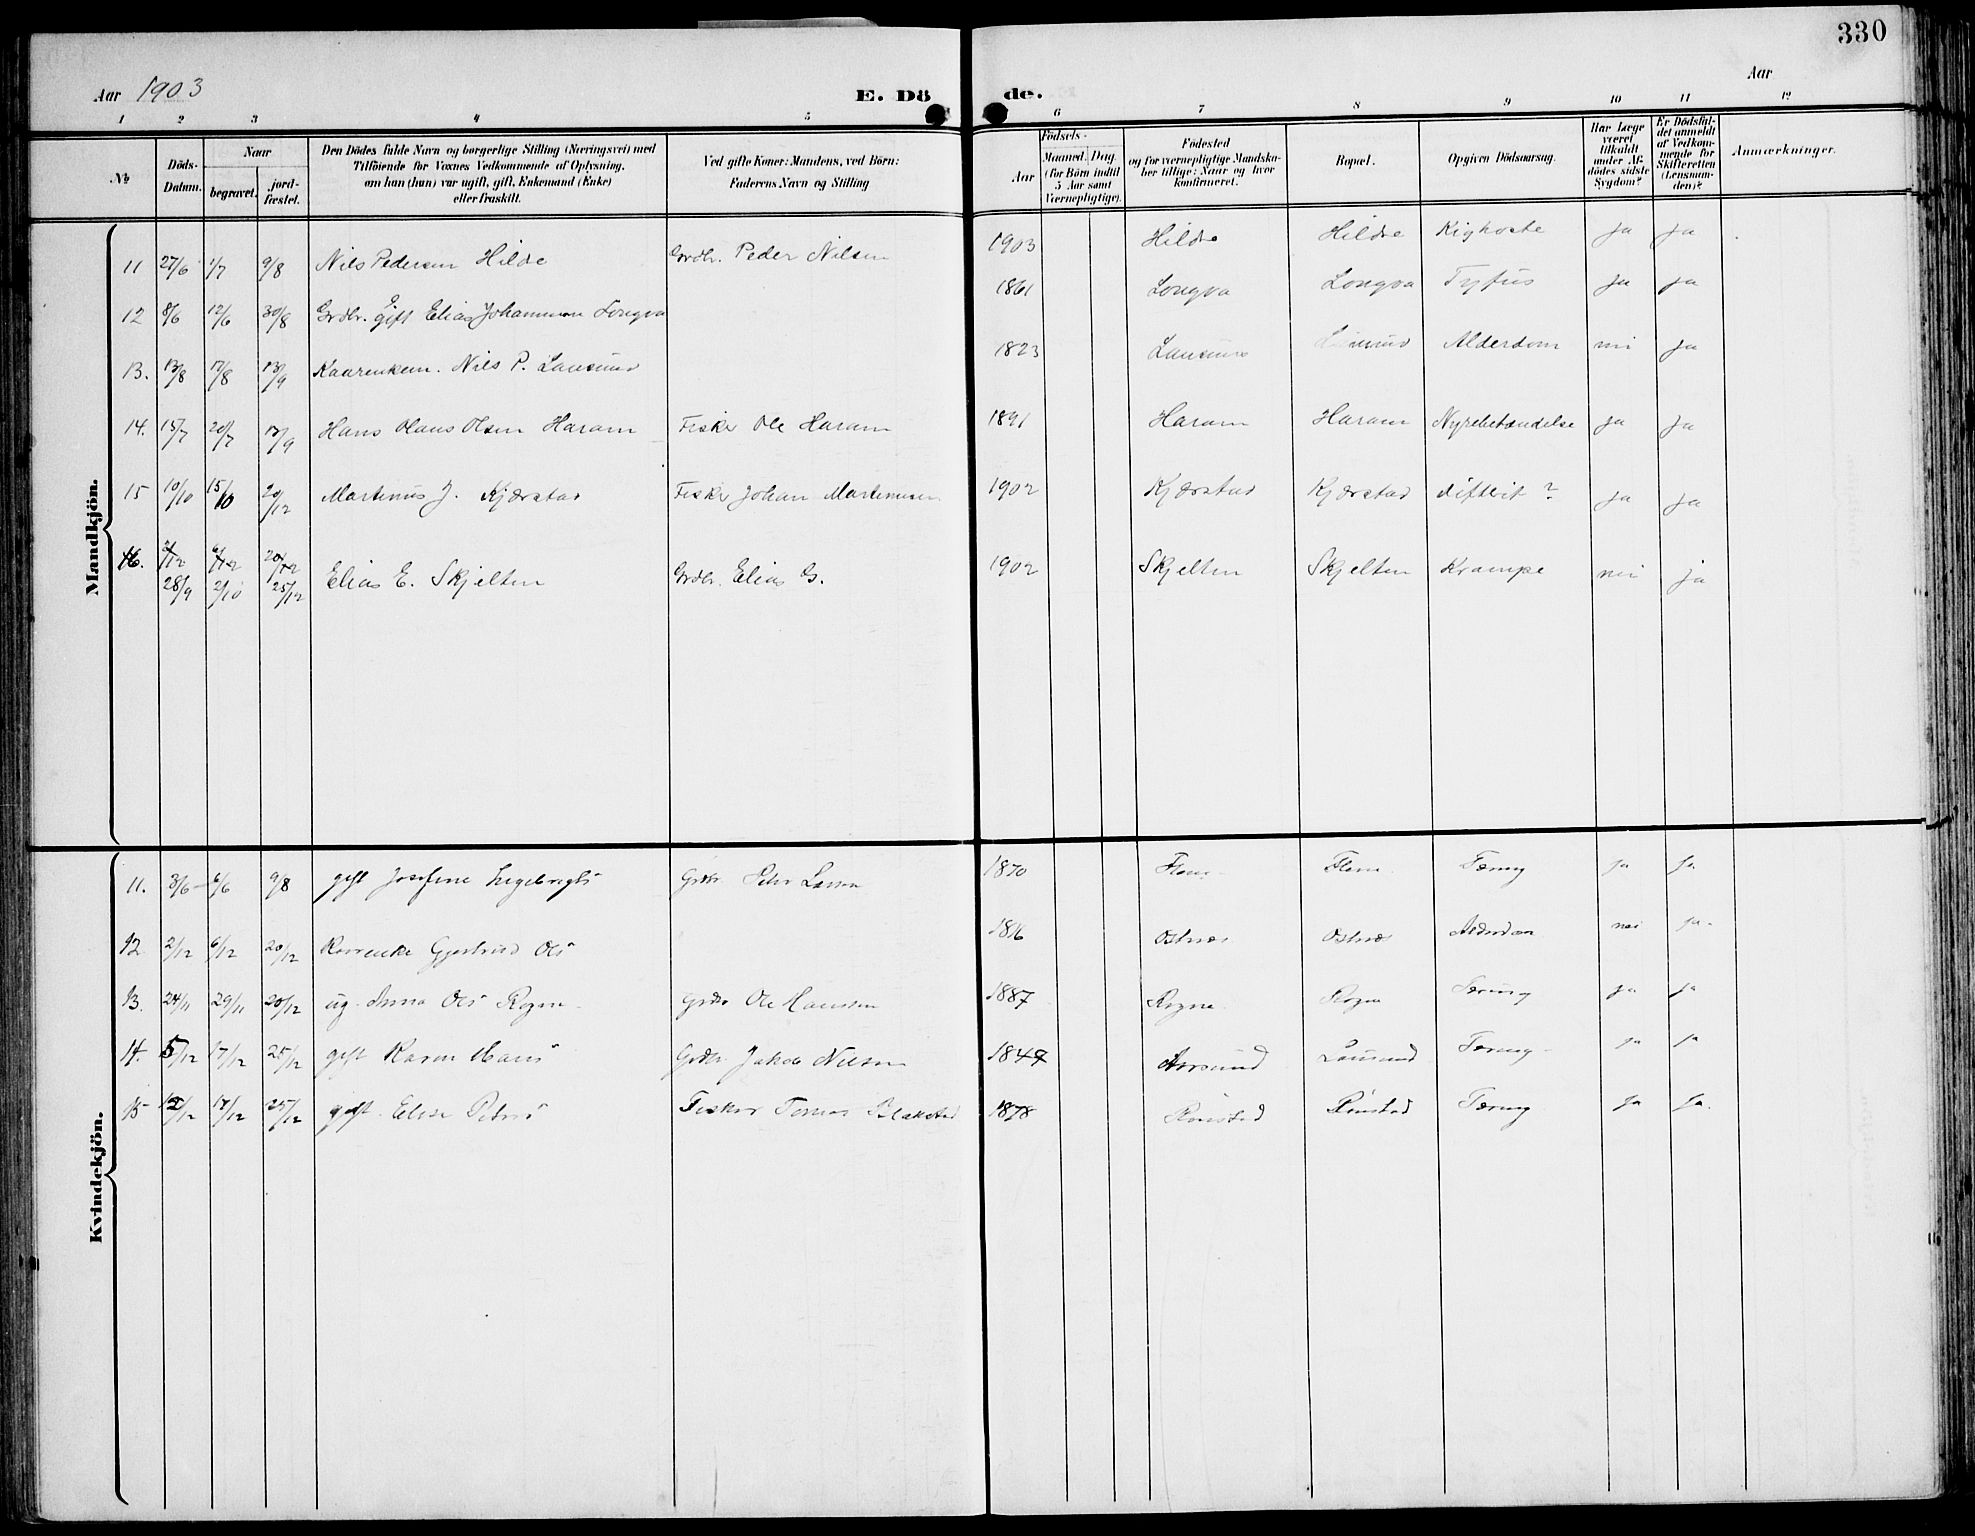 330
Aar 1903
E. Dö de.
Aar
1 2 3 4 5 6 7 8 9 10 11 12
No
Döds-Datum.
Naar
begravet.
jord-fæstet.
Den Dödes fulde Navn og borgerlige Stilling (Næringsvei) med
Tilföiende for Voxnes Vedkommende af Oplysning,
om han (hun) var ugift, gift, Enkemand (Enke)
eller fraskilt.
Ved gifte Koner: Mandens, ved Börn:
Faderens Navn og Stilling
Födsels-
Aar
Maaned. Dag.
(for Börn indtil
5 Aar samt
Værnepligtige).
Födested
og for værnepligtige Mandska-
ber tillige: Naar og hvor
konfirmeret.
Bopæl.
Opgiven Dödsaarsag.
Har Læge
været
tilkaldt
under Af-
dödes sidste
Sygdom?
Er Dödsfal-
det anmeldt
af Vedkom-
mende for
Skifteretten
(Lensman-
den)?
Anmærkninger.
Mandkjön.
11 27/6 1/7 9/8 Nils Pedersen Hilde Grdbr. Peder Nilsen 1903 Hildre Hildre Kighoste ja ja
12 8/6 12/6 30/8 Grdbr. gift Elias Johannesen Longva 1861 Longva Longva Tyfus ja ja
13. 13/8 17/8 13/9 Kaarenkem. Nils P. Lausund 1823 Lausund Lausund Alderdom nei ja
14. 15/7 20/7 13/9 Hans Olaus Olsen Haram Fisker Ole Haram 1891 Haram Haram Nyrebetændelse ja ja
15 10/10 15/10 20/12 Martinus J. Kjærstad Fisker Johan Martinusen 1902 Kjærstad Kjærstad difterit ? ja ja
16. 2/12 6/12 20/12
28/9 2/10 25/12 Elias E. Skjelten Grdbr. Elias G. 1902 Skjelten Skjelten Krampe nei ja
Kvindekjön.
11. 3/6 6/6 9/8 gift Josefine Ingebrigts Grdbr. Peder Larsen 1870 Flem Flem Tæring ja ja
12 2/12 6/12 20/12 Kaarenke Gjertrud Ols 1816 Østnes Østnes Alderdom nei ja
13. 24/11 29/11 20/12 ug. Anna Ols Rogne Grdbr Ole Hanssen 1887 Rogne Rogne Tæring ja ja
14. 5/12 17/12 25/12 gift Karen Hans Grdbr. Jakob Nilsen 1847 Aarsund Lausund Tæring ja ja
15 12/12 17/12 25/12 gift. Elise Peters Fisker Tomas Blakstad 1878 Rønstad Rønstad Tæring ja ja.